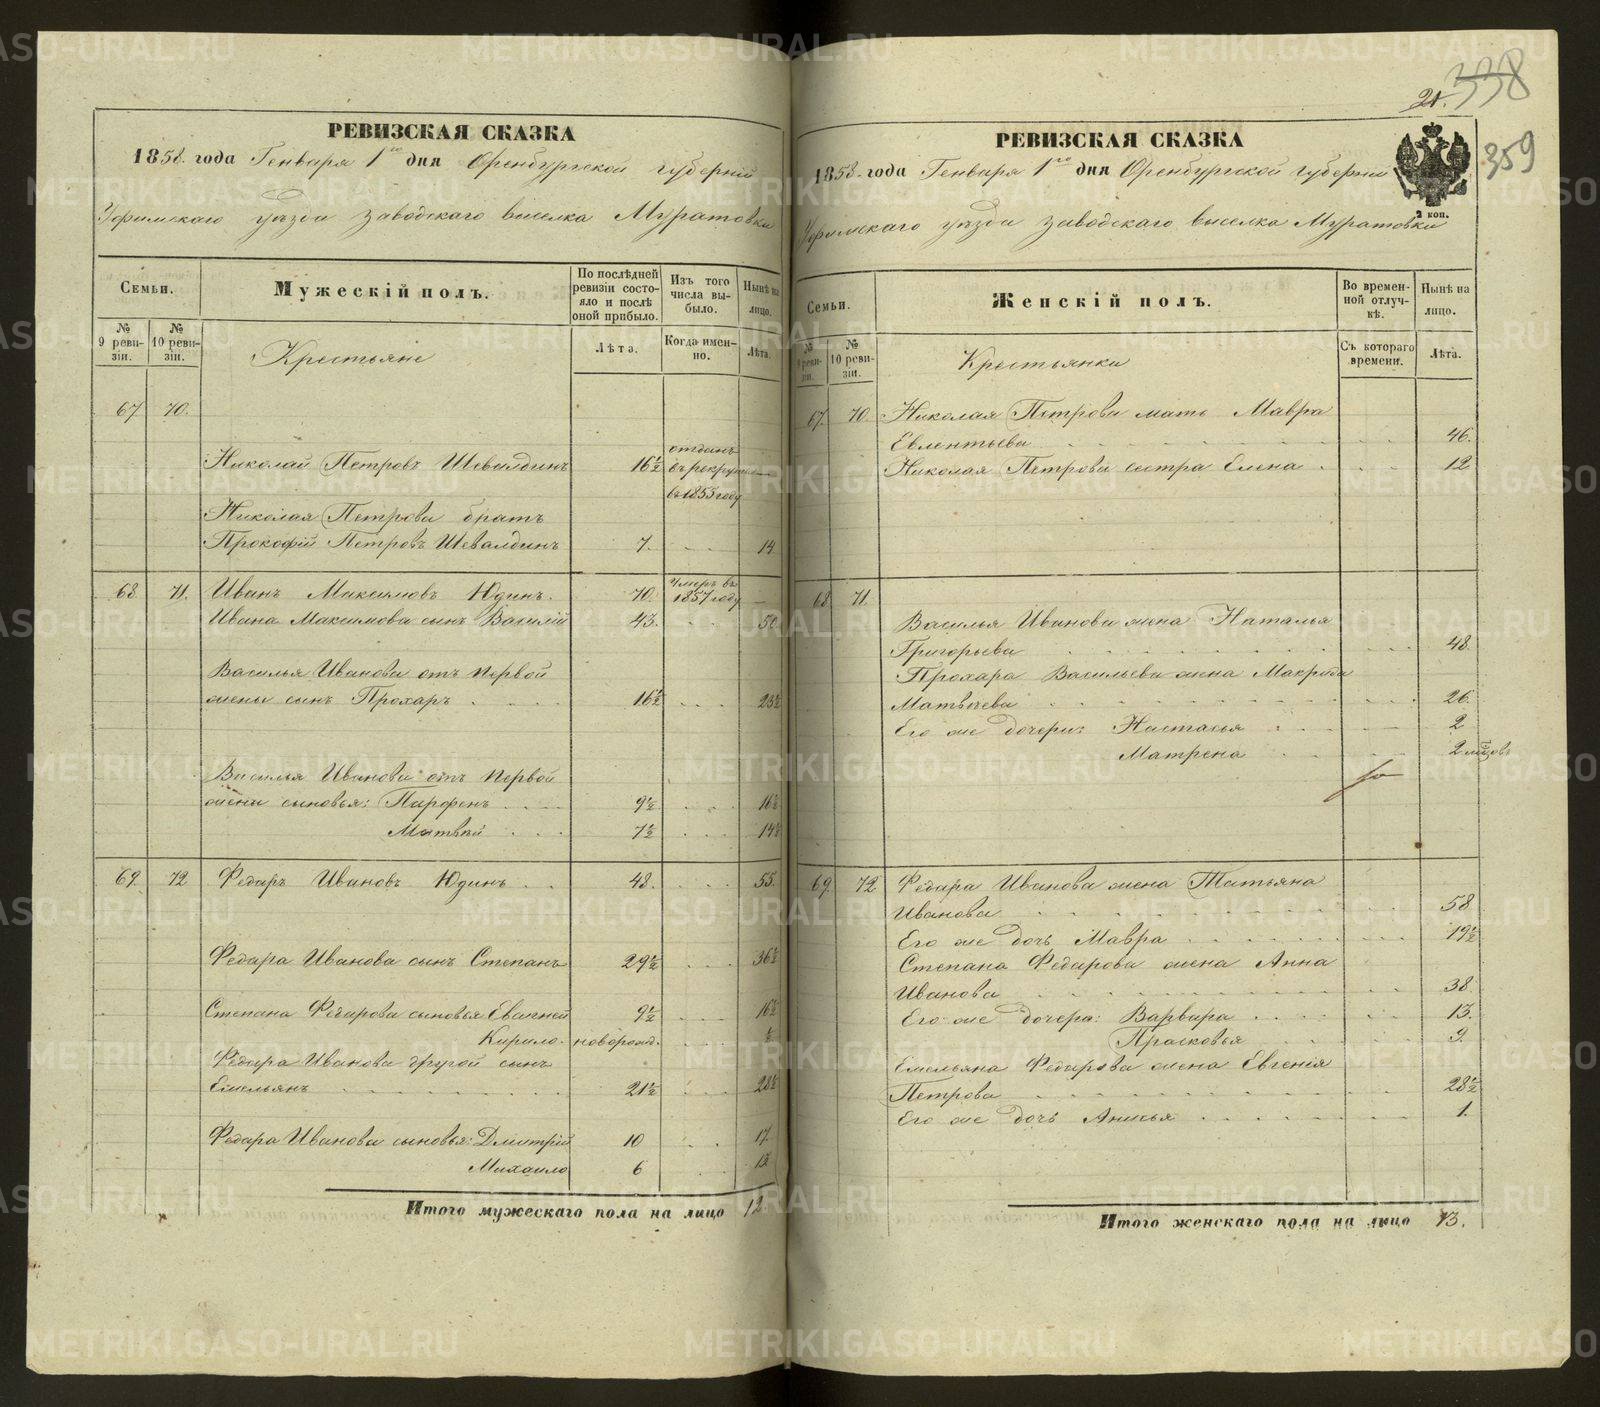 РЕВИЗСКАЯ СКАЗКА
1858. года Генваря 1го дня Оренбургской губерніи
Уфимскаго уѣзда заводскаго виселка Муратовки
Семьи.
Мужескій полъ.
По послѣдней ревизіи состояло и послѣ оной прибыло.
Изъ того числа выбыло.
Нынѣ на лицо.
№ 9 ревизіи.
№ 10 ревизіи.
Крестьяне
Лѣта.
Когда именно.
Лѣта.
67 70.
Николай Петровъ Шевалдинъ 16½ отданъ въ рекруты въ 1855 году —
Николая Петрова братъ
Прокофій Петровъ Шевалдинъ 7. 14
68 71. Иванъ Максимовъ Юдинъ. 70. Умеръ въ 1857 году —
Ивана Максимова сынъ Василій 43. 50
Василья Иванова отъ первой
жены сынъ Прохаръ 16½ 23½
Василья Иванова отъ первой
жены сыновья: Парфенъ 9½ 16½
Матвѣй 7½ 14½
69. 72 Федаръ Ивановъ Юдинъ 48. 55.
Федара Иванова сынъ Степанъ 29½ 36½
Степана Федарова сыновья Евагней 9½ 16½
Кирило новорожд. ½
Федара Иванова другой сынъ
Емельянъ 21½ 28½
Федара Иванова сыновья: Дмитрій 10 17
Михаило 6 13
Итого мужескаго пола на лицо 12
338
359
РЕВИЗСКАЯ СКАЗКА
1858. года Генваря 1го дня Оренбургской губерніи
2 коп.
Уфимскаго уѣзда заводскаго виселка Муратовки
Семьи.
Женскій полъ.
Во временной отлучкѣ.
Нынѣ на лицо.
№ 9 ревизіи.
№ 10 ревизіи.
Крестьянки
Съ котораго времени.
Лѣта.
67. 70. Николая Петрова мать Мавра
Евлентьева 46.
Николая Петрова сестра Елена 12
68 71.
Василья Иванова жена Наталья
Григорьева 48.
Прохара Васильева жена Макрида
Матвѣева 26.
Его же дочери: Настасья 2
Матрена 2 мѣсяцовъ
69. 72. Федара Иванова жена Татьяна
Иванова 58
Его же дочь Мавра 19½
Степана Федарова жена Анна
Иванова 38.
Его же дочера: Варвара 13.
Прасковья 9.
Емельяна Федарова жена Евгенія
Петрова 28½
Его же дочь Анисья 1.
Итого женскаго пола на лицо 13.
METRIKI.GASO-URAL.RU